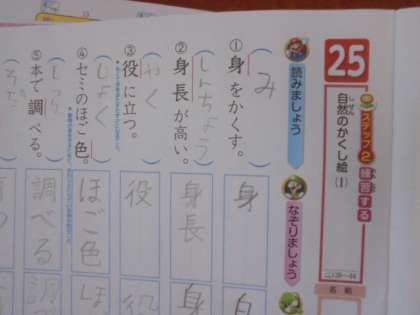 25
ステップ2 練習する
自然のかくし絵(1)
しぜん
名前
読みましょう
なぞりましょう
①身をかくす。
(み
②身長が高い。
(しんちょう)
③役に立つ。
(やく
④セミのほご色。
(しょく
⑤本で調べる。
身
身長
役
ほご色
調べる